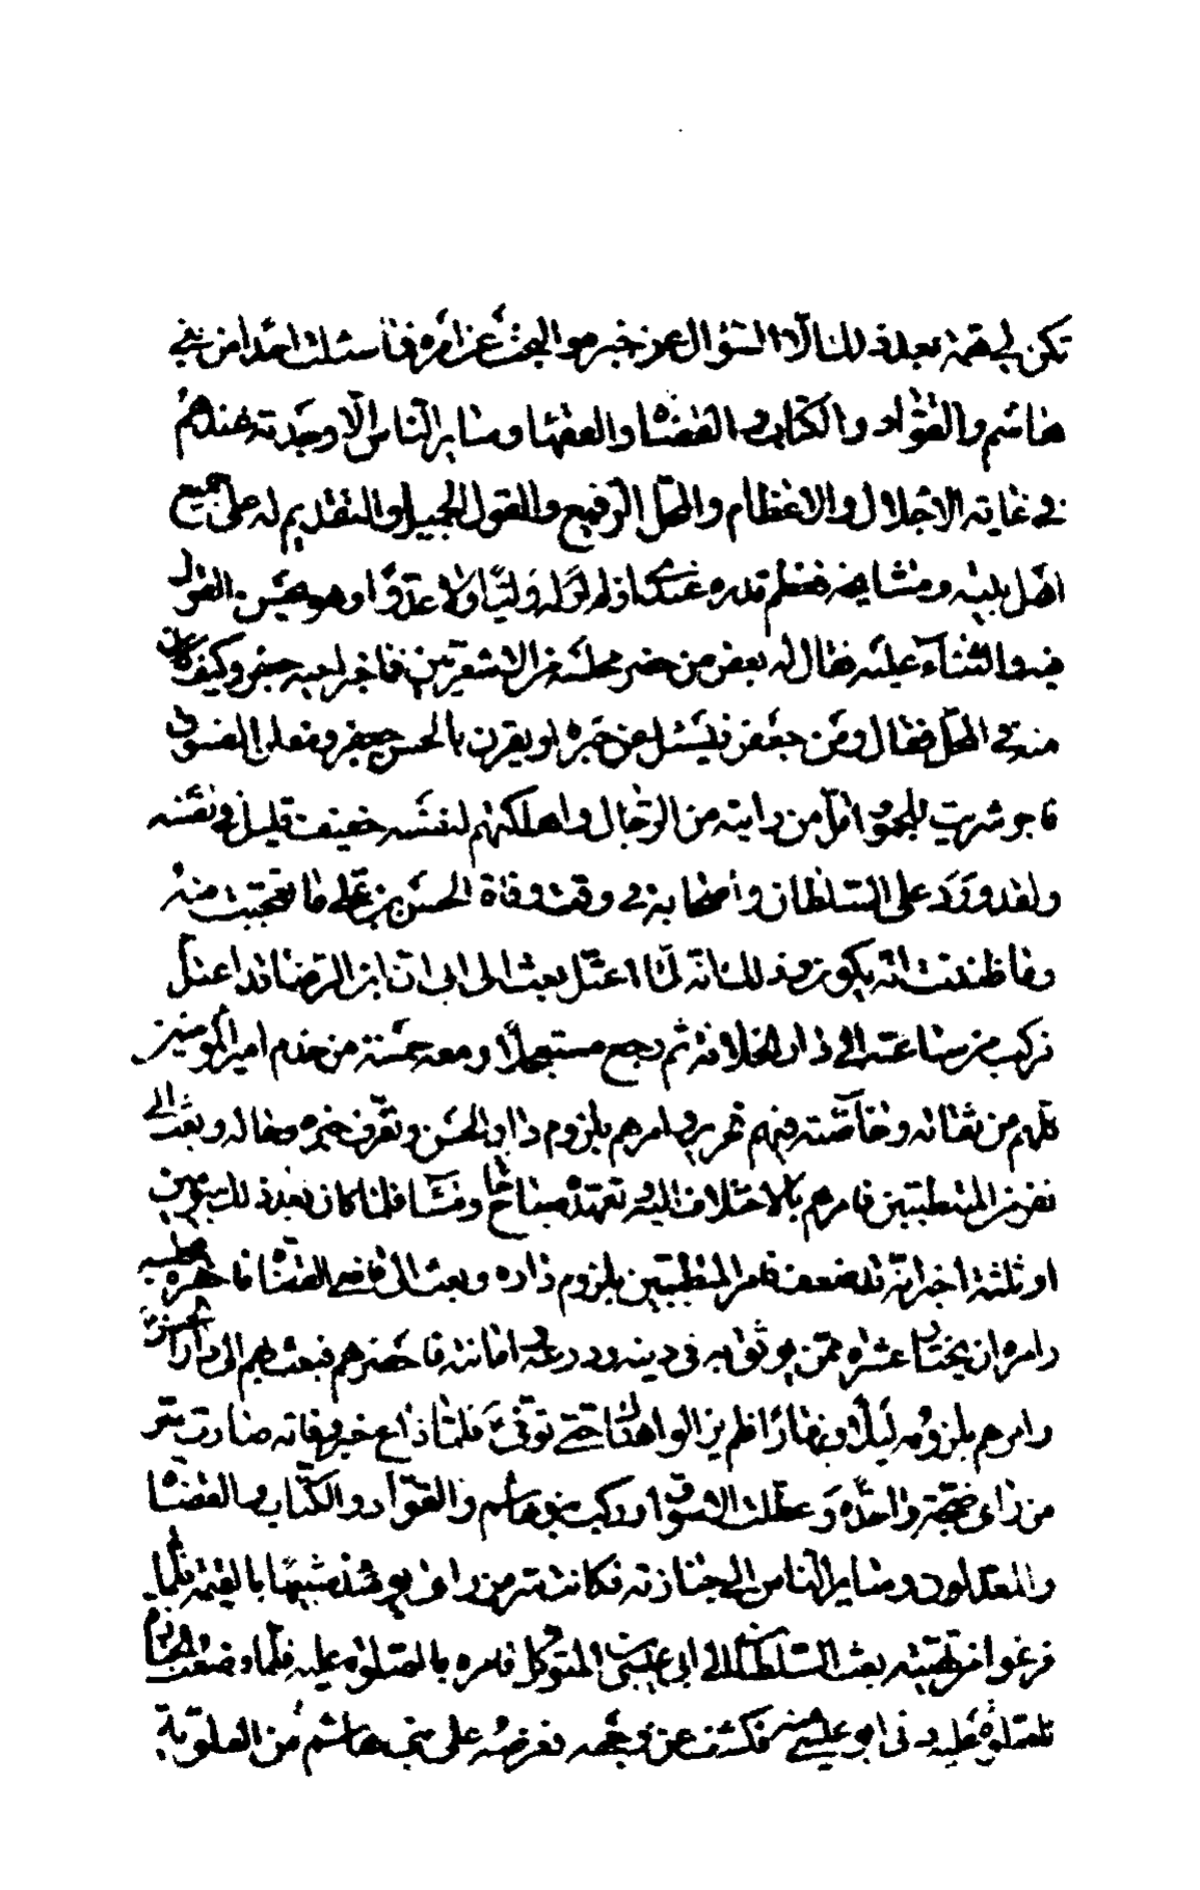 تكن لي همة بعد ذلك الا السؤال عن خبره والبحث عن امره فما سئلت احدا من بني
هاشم والقواد والكتاب والقضاة والفقهاء وساير الناس الا وجدته عندهم
في غاية الاجلال والاعظام والمحل الرفيع والقول الجميل والتقديم له على جميع
اهل بيته ومشايخه فعظم قدره عندي اذ لم ار له وليا ولا عدوا وهو يحسن القول
فيه والثناء عليه فقال له بعض من حضر مجلسه من الاشعريين فما خبر اخيه جعفر وكيف كان
منه في المحل فقال ومن جعفر فيسئل عن خبره او يقرن بالحسن جعفر ومعلن الفسوق
فاجر شريب للخمور اقل من رايته من الرجال واهتكهم لنفسه خفيف قليل في نفسه
ولقد ورد على السلطان واصحابه في وقت وفاة الحسن بن علي ما تعجبت منه
وما ظننت انه يكون وذلك انه لما اعتل بعث الى ابي ان ابن الرضا قد اعتل
فركب من ساعته الى دار الخلافة ثم رجع مستعجلا ومعه خمسة من خدم امير المؤمنين
كلهم من ثقاته وخاصته فيهم نحرير وامرهم بلزوم دار الحسن وتعرف خبره وحاله وبعث الى
نفر من المتطببين فامرهم بالاختلاف اليه وتعهده صباحا ومساء فلما كان بعد ذلك بيومين
او ثلثة اخبر انه قد ضعف فامر المتطببين بلزوم داره وبعث الى قاضي القضاة فاحضره مجلسه
وامره ان يختار عشرة ممن يوثق به في دينه وورعه وامانته فاحضرهم فبعث بهم الى دار الحسن
وامرهم بلزومه ليلا ونهارا فلم يزالوا هناك حتى توفي فلما ذاع خبر وفاته صارت سر
من راى ضجة واحدة وعطلت السوق وركب بنو هاشم والقواد والكتاب والقضاة
والمعدلون وساير الناس الى جنازته فكانت سر من راى يومئذ شبيها بالقيمة فلما
فرغوا من تهيئته بعث السلطان الى ابي عيسى بن المتوكل فامره بالصلوة عليه فلما وضعت الجنازة
للصلوة عليه دنى ابو عيسى منه فكشف عن وجهه فعرضه على بني هاشم من العلوية